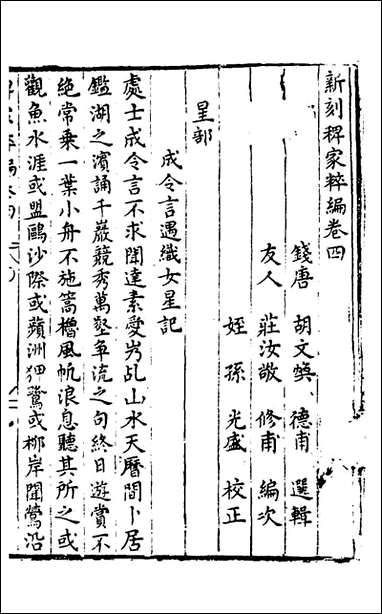 新刻稗家粹編卷四
錢唐 胡文煥 德甫 選輯
友人 莊汝敬 修甫 編次
姪孫 光盛 校正
星部
成令言遇織女星記
處士成令言不求聞達素愛㞦乩山水天曆間卜居
鑑湖之濱誦千巖競秀萬壑争流之句終日遊賞不
絶常乗一葉小舟不施篙櫓風帆浪息聽其所之或
觀魚水涯或盟鷗沙際或蘋洲狎鷺或栁岸聞鶯沿